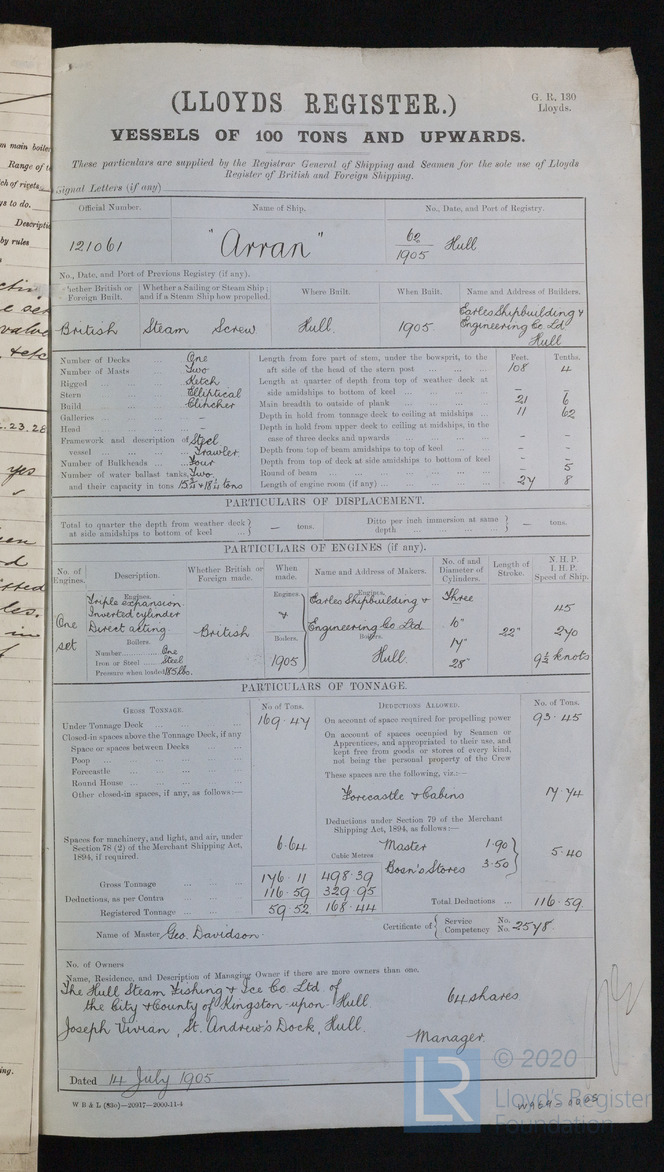 (LLOYDS REGISTER.)
G. R. 130
Lloyds.
VESSELS OF 100 TONS AND UPWARDS.
These particulars are supplied by the Registrar General of Shipping and Seamen for the sole use of Lloyds
Register of British and Foreign Shipping.
Signal Letters (if any)
Official Number. Name of Ship. No., Date, and Port of Registry.
121061 "Arran" 60/1905 Hull
No., Date, and Port of Previous Registry (if any).
Whether British or Foreign Built. Whether a Sailing or Steam Ship; and if a Steam Ship how propelled. Where Built. When Built. Name and Address of Builders.
British Steam Screw Hull. 1905. Earles Shipbuilding & Engineering Co Ld Hull
Number of Decks ... One
Number of Masts ... Two
Rigged ... Ketch
Stern ... Elliptical
Build ... Clincher
Galleries ... –
Head ... –
Framework and description of vessel ... Steel Trawler.
Number of Bulkheads ... Four
Number of water ballast tanks, Two
and their capacity in tons 15¾ & 18¼ tons
Feet. Tenths.
Length from fore part of stem, under the bowsprit, to the
aft side of the head of the stern post ... 108 4
Length at quarter of depth from top of weather deck at
side amidships to bottom of keel ... – –
Main breadth to outside of plank ... 21 6
Depth in hold from tonnage deck to ceiling at midships ... 11 62
Depth in hold from upper deck to ceiling at midships, in the
case of three decks and upwards ... – –
Depth from top of beam amidships to top of keel ... – –
Depth from top of deck at side amidships to bottom of keel – –
Round of beam ... – 5
Length of engine room (if any) ... 27 8
PARTICULARS OF DISPLACEMENT.
Total to quarter the depth from weather deck at side amidships to bottom of keel } — tons. Ditto per inch immersion at same depth } — tons.
PARTICULARS OF ENGINES (if any).
No. of Engines. Description. Whether British or Foreign made. When made. Name and Address of Makers. No. of and Diameter of Cylinders. Length of Stroke. N.H.P. I.H.P. Speed of Ship.
One set
Engines.
Triple expansion
Inverted cylinder
Direct acting.
Boilers.
Number ... One
Iron or Steel ... Steel
Pressure when loaded 185 lbs.
British
Engines
&
Boilers.
1905
Engines.
Earles Shipbuilding &
Engineering Co Ltd
Boilers.
Hull.
Three
10"
17"
28"
22"
45
270
9½ knots
PARTICULARS OF TONNAGE.
GROSS TONNAGE. No of Tons.
Under Tonnage Deck ... 169.47
Closed-in spaces above the Tonnage Deck, if any
Space or spaces between Decks ...
Poop ...
Forecastle ...
Round House ...
Other closed-in spaces, if any, as follows:—
Spaces for machinery, and light, and air, under
Section 78 (2) of the Merchant Shipping Act,
1894, if required. 6.64
Cubic Metres
Gross Tonnage ... 176.11 498.39
Deductions, as per Contra ... 116.59 329.95
Registered Tonnage ... 59.52 168.44
DEDUCTIONS ALLOWED. No. of Tons.
On account of space required for propelling power 93.45
On account of spaces occupied by Seamen or
Apprentices, and appropriated to their use, and
kept free from goods or stores of every kind,
not being the personal property of the Crew
These spaces are the following, viz.:—
Forecastle & Cabins 17.74
Deductions under Section 79 of the Merchant
Shipping Act, 1894, as follows:—
Master 1.90
Bosn's Stores 3.50
5.40
Total Deductions ... 116.59
Name of Master Geo. Davidson. Certificate of { Service No. Competency No. 2578.
No. of Owners
Name, Residence, and Description of Managing Owner if there are more owners than one.
The Hull Steam Fishing & Ice Co. Ltd. of
the City & County of Kingston-upon-Hull. 64 shares
Joseph Vivian, St. Andrew's Dock, Hull.
Manager.
Dated 14 July 1905.
W B & L (83o)—20917—2000-11-4
© 2020
LR
Lloyd's Register
Foundation